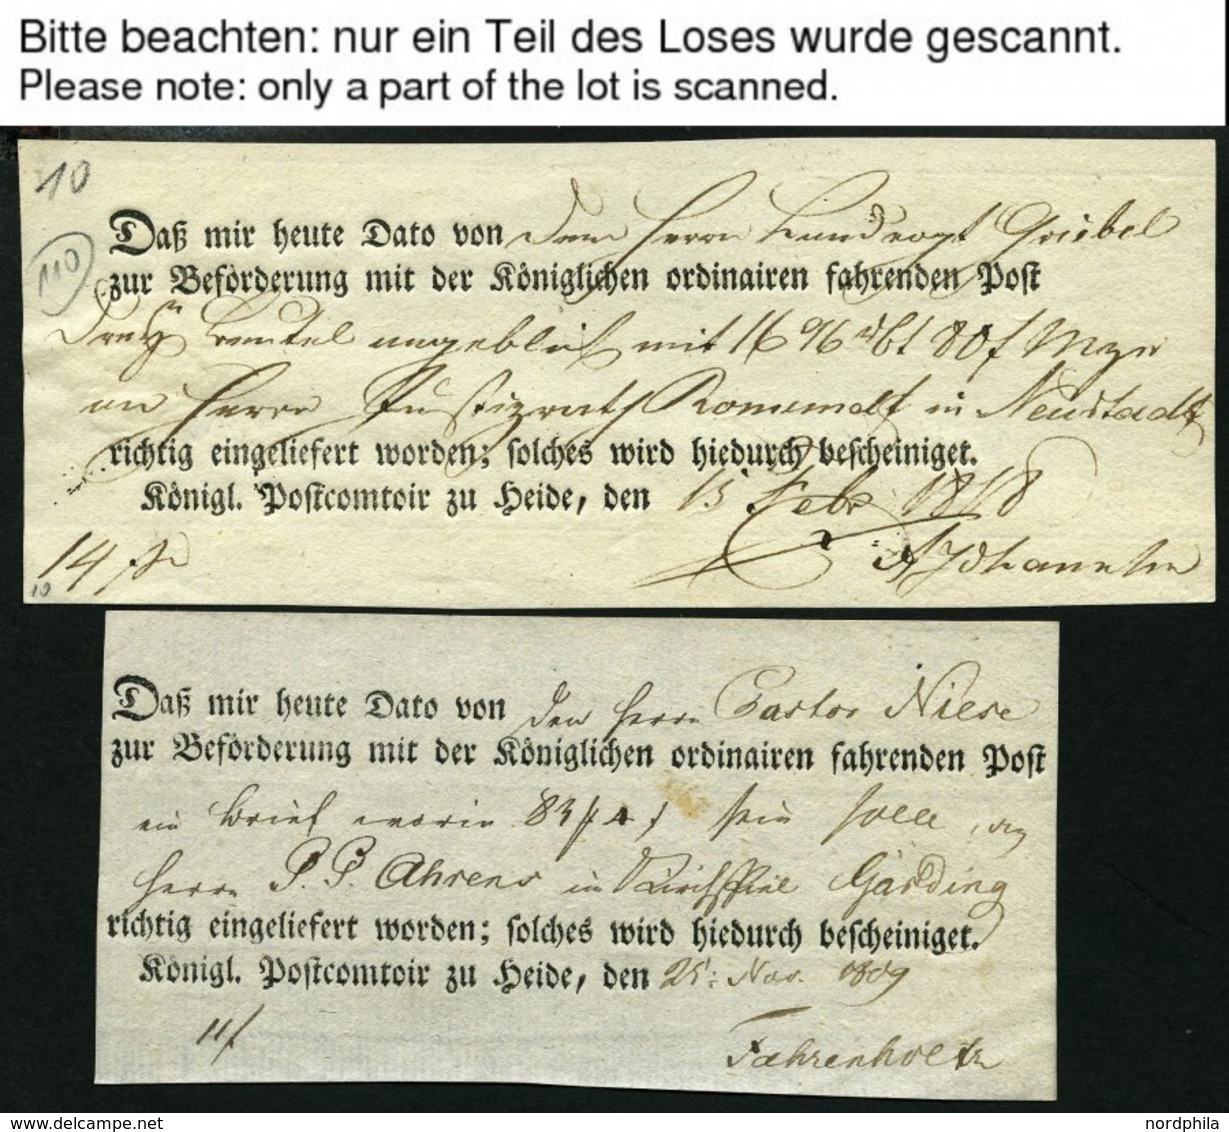 Bitte beachten: nur ein Teil des Loses wurde gescannt.
Please note: only a part of the lot is scanned.
10
110
Daß mir heute Dato von dem Herrn Landvogt Griebel
zur Beförderung mit der Königlichen ordinairen fahrenden Post
Beutel angeblich mit 16 96 rbt 80 f
an Herrn Justizrath in Neustadt
richtig eingeliefert worden; solches wird hiedurch bescheiniget.
Königl. Postcomtoir zu Heide, den 15 Febr 1818
14 Johannsen
10
Daß mir heute Dato von den Herrn Pastor Niese
zur Beförderung mit der Königlichen ordinairen fahrenden Post
ein Brief worin 83 sein solle, an
Herrn P. P. Ahrens in Kirchspiel Garding
richtig eingeliefert worden; solches wird hiedurch bescheiniget.
Königl. Postcomtoir zu Heide, den 25: Nov. 1809
11 f
Fahrenholtz
www.delcampe.net
nordphila